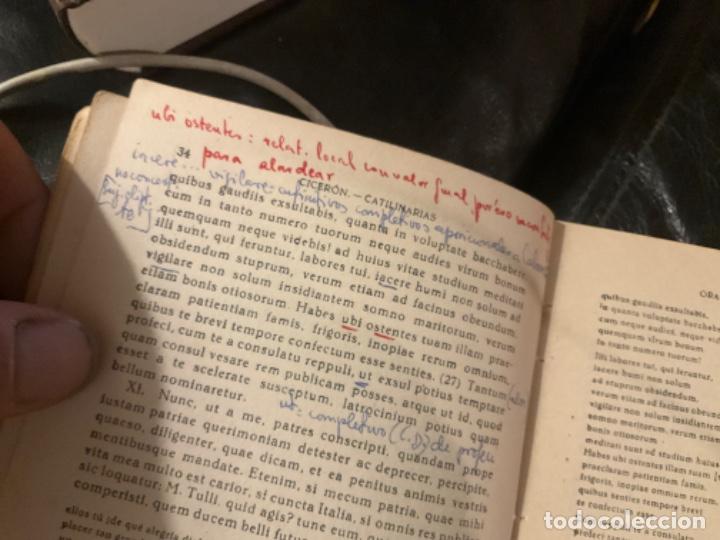 ubi ostentes: relat. local con valor final, por eso va en subj.
para alardear
34
CICERÓN.—CATILINARIAS
iacere... vigilare: infinitivos completivos aposicionales a labores
quibus gaudiis exsultabis, quanta in voluptate bacchabere,
cum in tanto numero tuorum neque audies virum bonum
quemquam neque videbis! ad huius vitae studium meditati
illi sunt, qui feruntur, labores tui, iacere humi non solum ad
obsidendum stuprum, verum etiam ad facinus obeundum,
vigilare non solum insidiantem somno maritorum, verum
etiam bonis otiosorum. Habes ubi ostentes tuam illam prae-
claram patientiam famis, frigoris, inopiae rerum omnium,
quibus te brevi tempore confectum esse senties. (27) Tantum
profeci, cum te a consulatu reppuli, ut exsul potius temptare
quam consul vexare rem publicam posses, atque ut id, quod
esset a te scelerate susceptum, latrocinium potius quam
bellum nominaretur.
ut: completivo (C.D) de profeci
XI. Nunc, ut a me, patres conscripti, quandam prope
iustam patriae querimoniam detester ac deprecer, percipite,
quaeso, diligenter, quae dicam, et ea penitus animis vestris
mentibusque mandate. Etenim, si mecum patria, quae mihi
vita mea multo est carior, si cuncta Italia, si omnis res publica
sic loquatur: M. Tulli, quid agis? tune eum, quem
comperisti, quem ducem belli futuri
ellos tú ¡de qué alegría
placer tan grande
ORA
quibus gaudiis exsultabis,
quanta voluptate bacchabere
cum neque audies, neque videbis
in tanto numero tuorum!
Illi labores tui, qui feruntur,
iacere humi non solum
ad obsidendum stuprum,
verum etiam ad facinus obeundum,
vigilare non solum
insidiantem somno maritorum,
verum etiam bonis otiosorum
meditati sunt ad studium huius
Habes ubi ostentes tuam illam
praeclaram patientiam famis,
frigoris, inopiae rerum omnium,
quibus senties brevi tempore
te confectum esse.
todocoleccion
todocoleccion.net